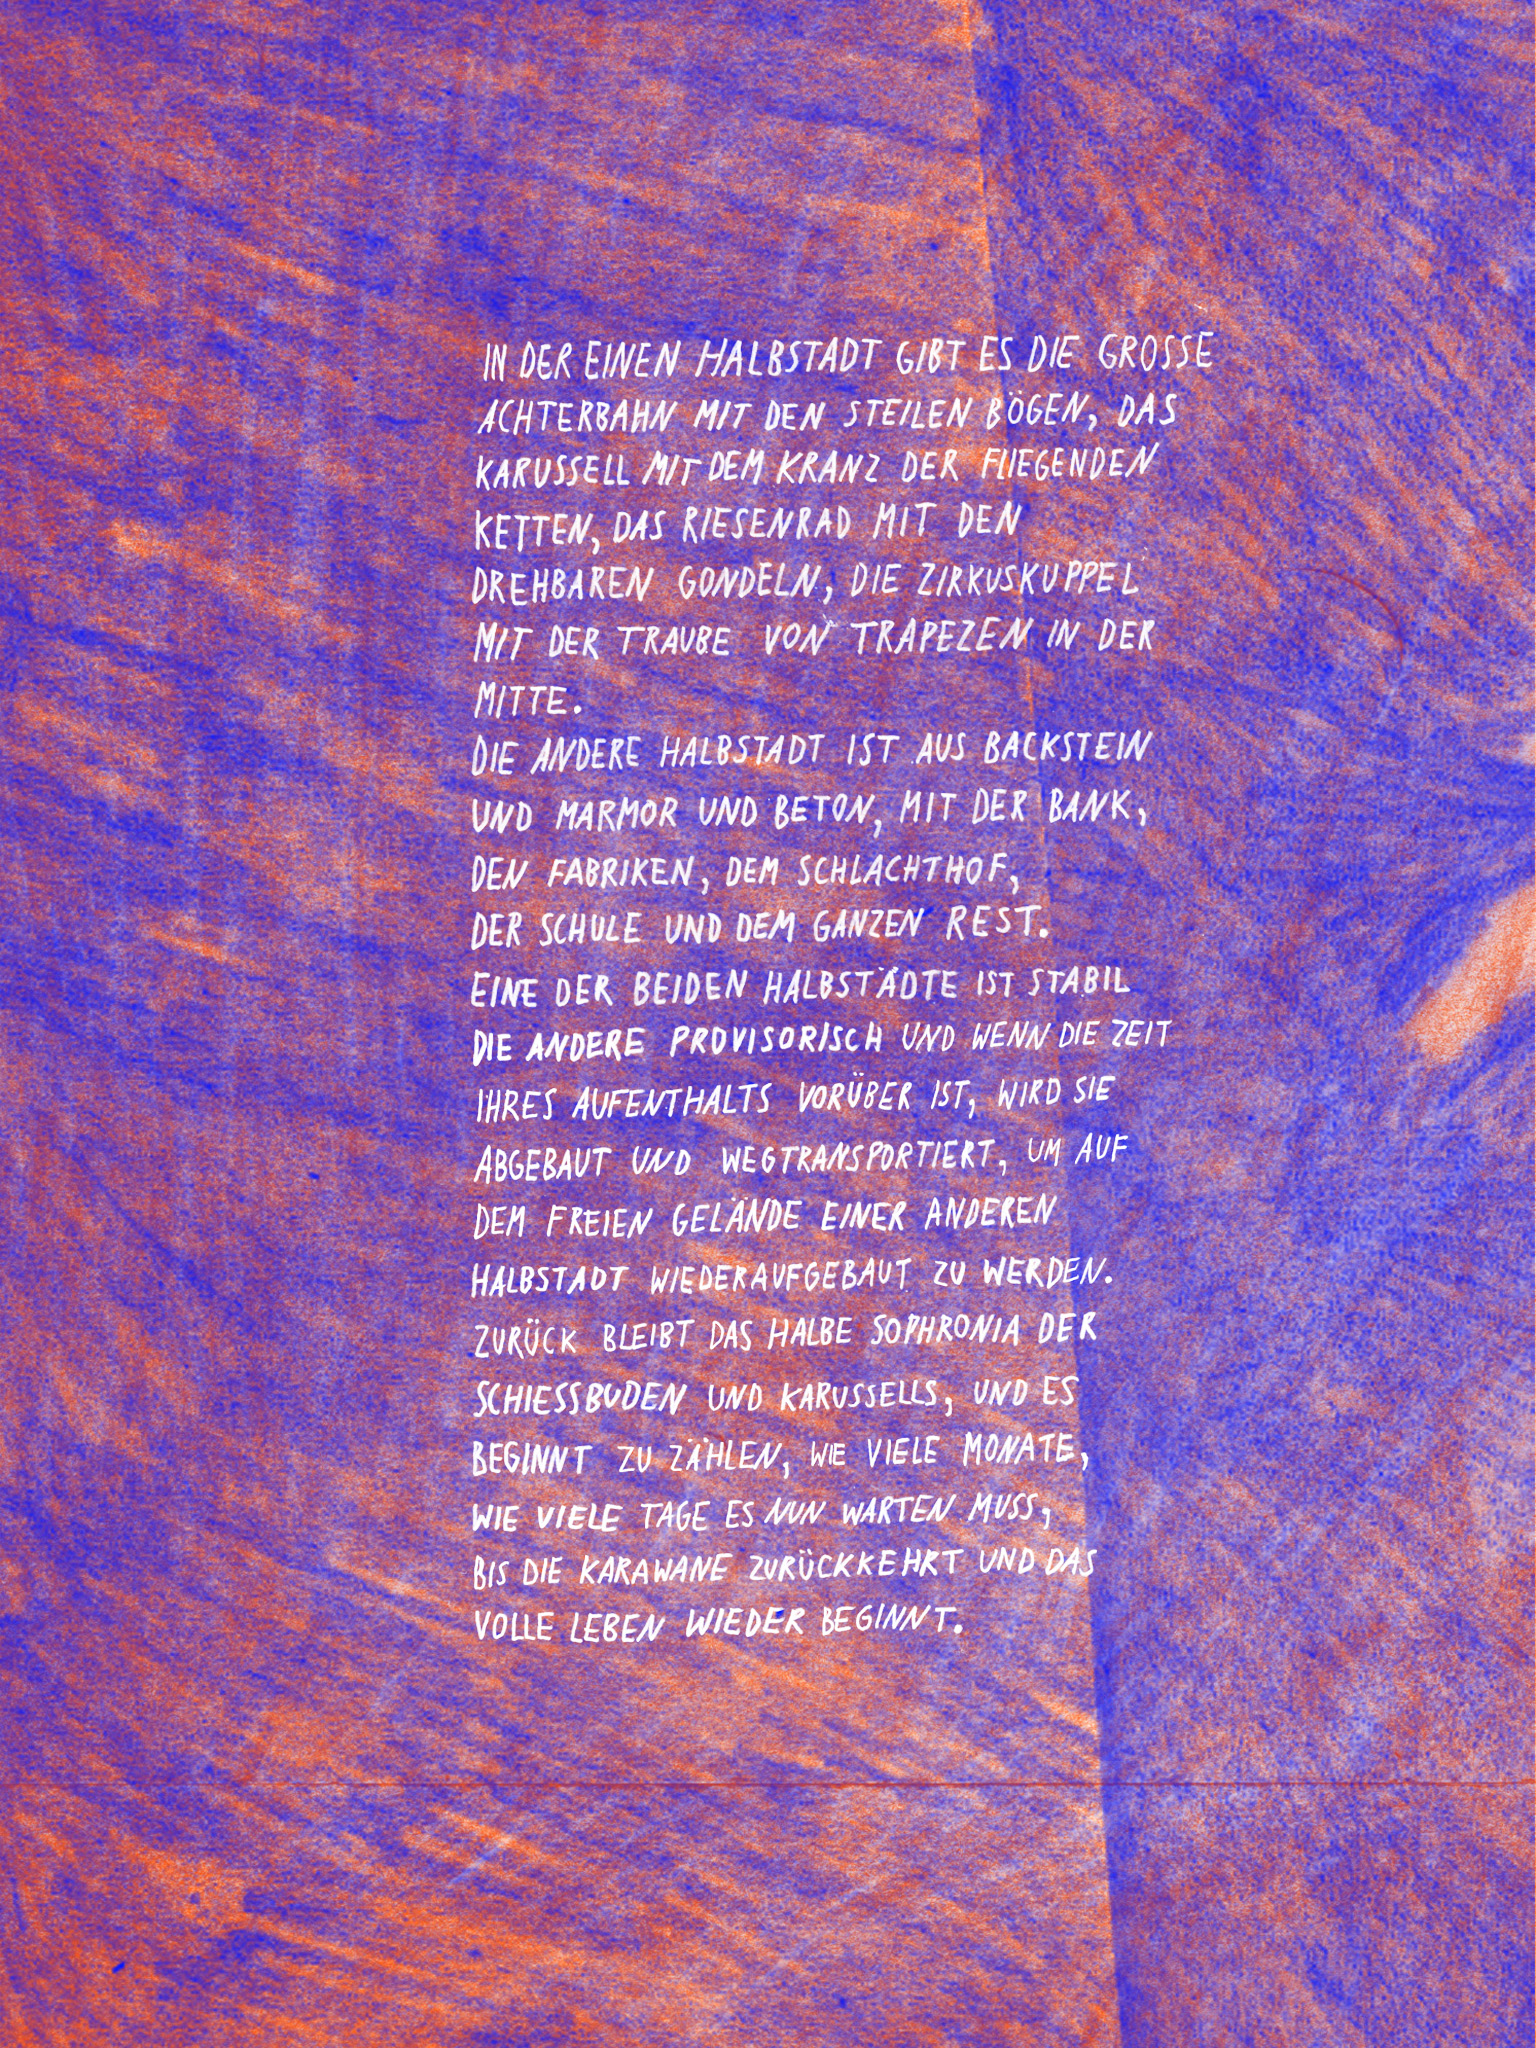 IN DER EINEN HALBSTADT GIBT ES DIE GROSSE
ACHTERBAHN MIT DEN STEILEN BÖGEN, DAS
KARUSSELL MIT DEM KRANZ DER FLIEGENDEN
KETTEN, DAS RIESENRAD MIT DEN
DREHBAREN GONDELN, DIE ZIRKUSKUPPEL
MIT DER TRAUBE VON TRAPEZEN IN DER
MITTE.
DIE ANDERE HALBSTADT IST AUS BACKSTEIN
UND MARMOR UND BETON, MIT DER BANK,
DEN FABRIKEN, DEM SCHLACHTHOF,
DER SCHULE UND DEM GANZEN REST.
EINE DER BEIDEN HALBSTÄDTE IST STABIL
DIE ANDERE PROVISORISCH UND WENN DIE ZEIT
IHRES AUFENTHALTS VORÜBER IST, WIRD SIE
ABGEBAUT UND WEGTRANSPORTIERT, UM AUF
DEM FREIEN GELÄNDE EINER ANDEREN
HALBSTADT WIEDERAUFGEBAUT ZU WERDEN.
ZURÜCK BLEIBT DAS HALBE SOPHRONIA DER
SCHIESSBUDEN UND KARUSSELLS, UND ES
BEGINNT ZU ZÄHLEN, WIE VIELE MONATE,
WIE VIELE TAGE ES NUN WARTEN MUSS,
BIS DIE KARAWANE ZURÜCKKEHRT UND DAS
VOLLE LEBEN WIEDER BEGINNT.